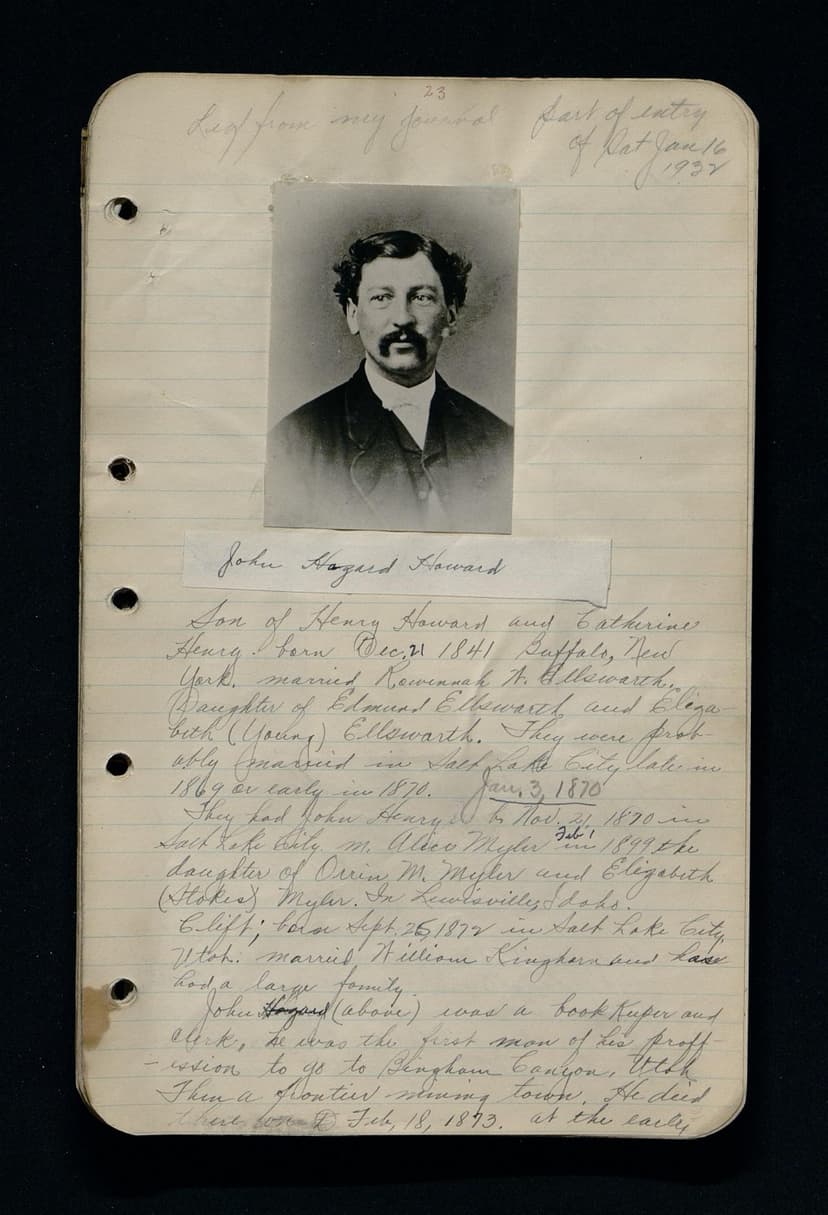 23
from my journal part of entry
of Sat Jan 16
1932
John Hazard Howard
Son of Henry Howard and Catherine
Henry. born Dec. 21 1841 Buffalo, New
York. married Rowennah N. Ellsworth.
Daughter of Edmund Ellsworth and Eliza-
beth (Young) Ellsworth. They were prob-
ably married in Salt Lake City late in
1869 or early in 1870. Jan. 3, 1870
They had John Henry b Nov. 21 1870 in
Salt Lake City. m. Alice Myler Feb 1 in 1899 the
daughter of Orrin M. Myler and Elizabeth
(Stokes) Myler. In Lewisville, Idaho.
Clift; born Sept. 25, 1872 in Salt Lake City,
Utah. married William Kinghorn and have
had a large family.
John Hazard (above) was a book Keeper and
Clerk, he was the first man of his proff-
-ession to go to Bingham Canyon, Utah
Then a frontier mining town. He died
there on Feb, 18, 1873. at the early